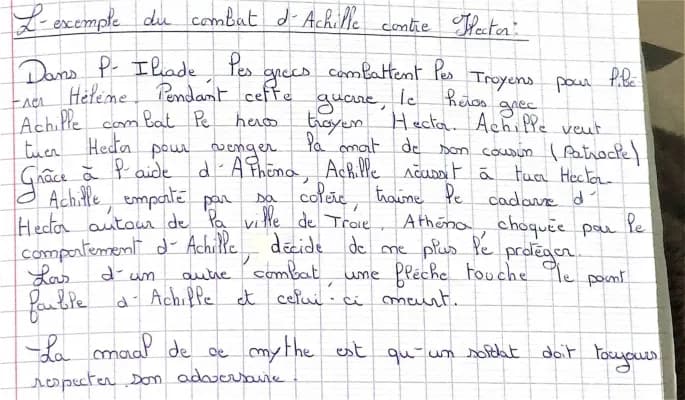 L'exemple du combat d'Achille contre Hector :
Dans l'Iliade, les grecs combattent les Troyens pour libé
-rer Hélène. Pendant cette guerre, le héros grec
Achille combat le heros troyen Hector. Achille veut
tuer Hector pour venger la mort de son cousin (Patrocle)
Grâce à l'aide d'Athéna, Achille réussit à tuer Hector.
Achille, emporté par sa colère, traîne le cadavre d'
Hector autour de la ville de Troie. Athéna, choquée par le
comportement d'Achille, décide de ne plus le protéger.
Lors d'un autre combat, une flèche touche le point
faible d'Achille et celui-ci meurt.
-La moral de ce mythe est qu'un soldat doit toujours
respecter son adversaire.